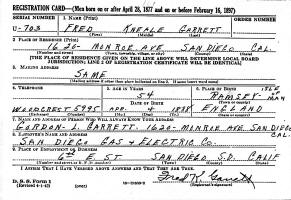 REGISTRATION CARD—(Men born on or after April 28, 1877 and on or before February 16, 1897)
SERIAL NUMBER 1. NAME (Print) ORDER NUMBER
U-703 FRED KNEALE GARRETT
(First) (Middle) (Last)
2. PLACE OF RESIDENCE (Print)
1620-MONROE AVE SAN DIEGO CAL.
[THE PLACE OF RESIDENCE GIVEN ON THE LINE ABOVE WILL DETERMINE LOCAL BOARD
JURISDICTION; LINE 2 OF REGISTRATION CERTIFICATE WILL BE IDENTICAL]
3. MAILING ADDRESS
SAME
[Mailing address if other than place indicated on line 2. If same insert word same]
4. TELEPHONE 5. AGE IN YEARS 6. PLACE OF BIRTH
54 RAMSEY ISLE MAN
DATE OF BIRTH
WOODCREST 5995 APR. 4 1888 ENGLAND
7. NAME AND ADDRESS OF PERSON WHO WILL ALWAYS KNOW YOUR ADDRESS
GORDON-L. GARRETT. 1620-MONROE AVE SAN DIEGO CAL
8. EMPLOYER'S NAME AND ADDRESS
SAN DIEGO GAS & ELECTRIC CO.
9. PLACE OF EMPLOYMENT OR BUSINESS
6TH E. ST SAN DIEGO S.D. CALIF
I AFFIRM THAT I HAVE VERIFIED ABOVE ANSWERS AND THAT THEY ARE TRUE.
D. S. S. Form 1
(Revised 4-1-42)
Fred K. Garrett